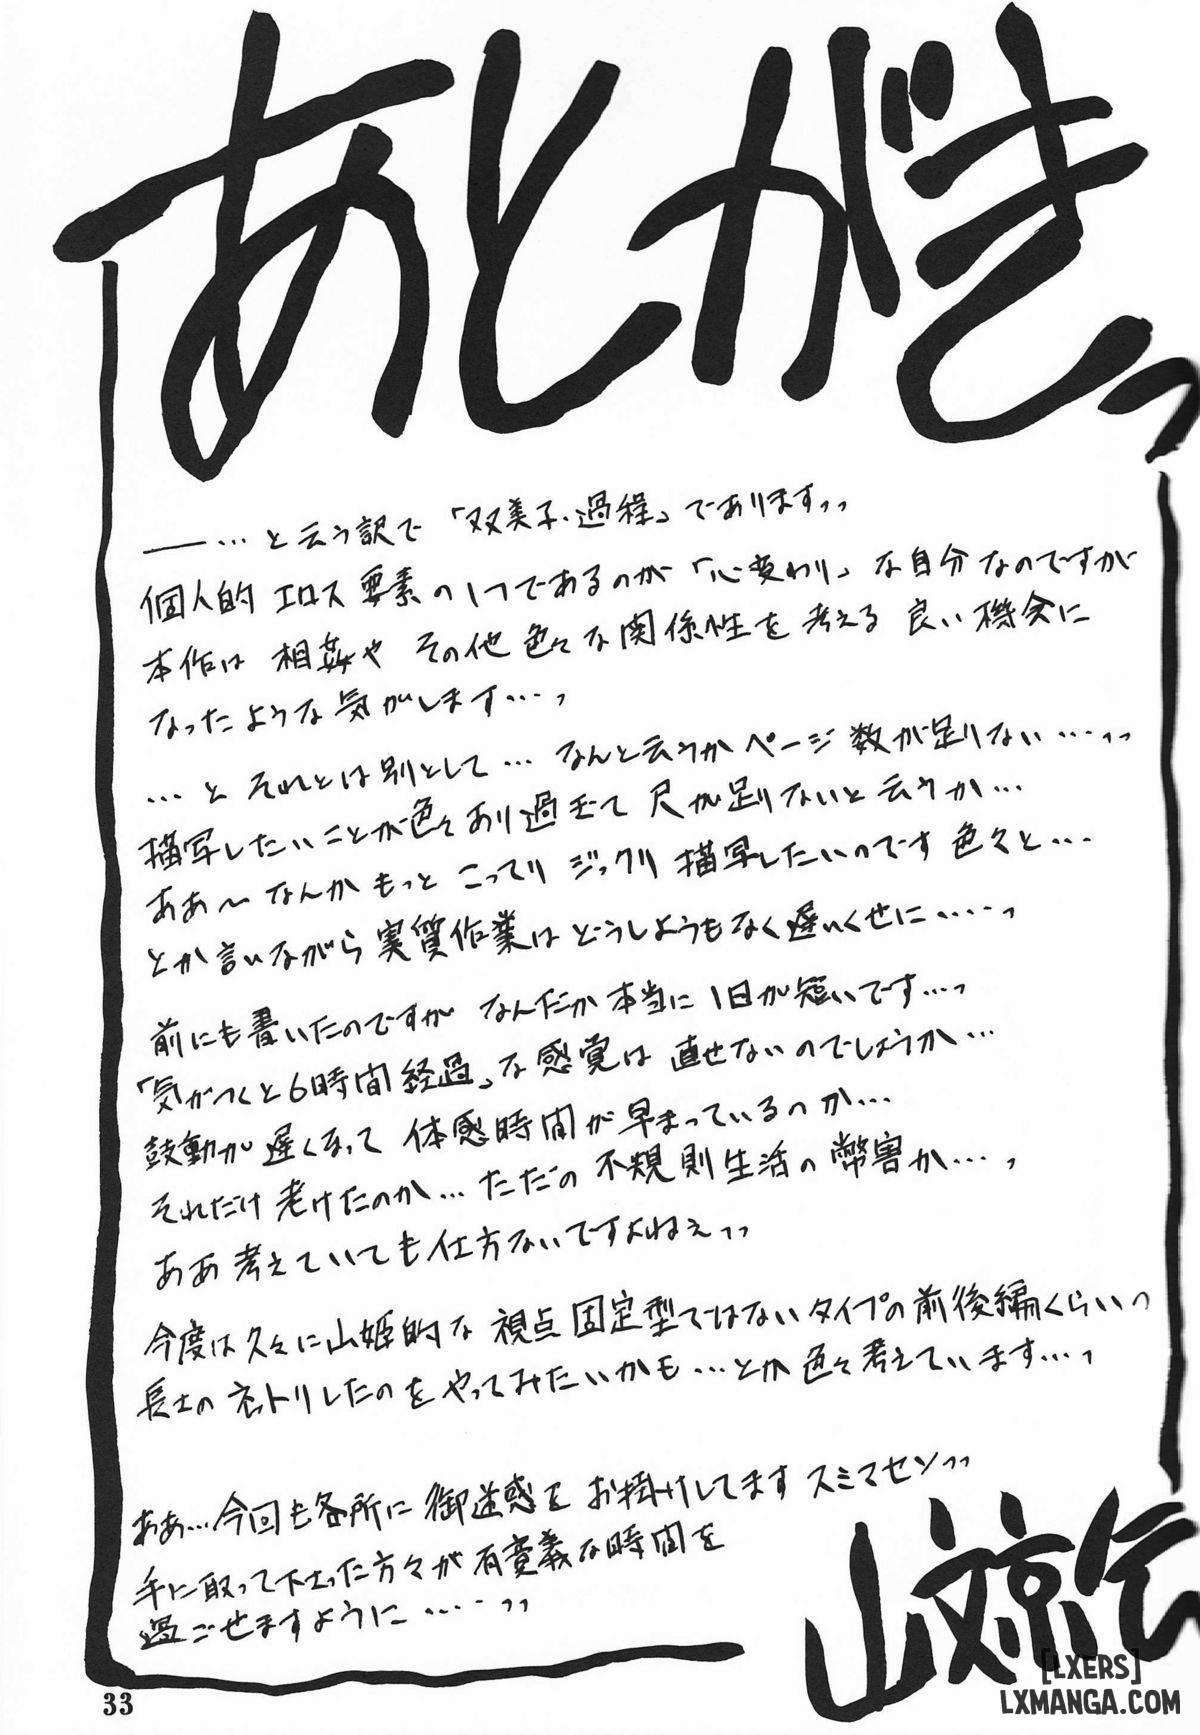 あとがきっ
――…と云う訳で「双美子・過程」でありますっっ
個人的エロス要素の1つであるのが「心変わり」な自分なのですが
本作は相姦やその他色々な関係性を考える良い機会に
なったような気がします…っ
…とそれとは別として…なんと云うかページ数が足りない…っっ
描写したいことが色々あり過ぎて尺が足りないと云うか…
ああ～なんかもっとこってりジックリ描写したいのです色々と…
とか言いながら実質作業はどうしようもなく遅いくせに……っ
前にも書いたのですがなんだか本当に1日が短いです…っ
「気がつくと6時間経過」な感覚は直せないのでしょうか…
鼓動が遅くなって体感時間が早まっているのか…
それだけ老けたのか…ただの不規則生活の弊害か…っ
ああ考えていても仕方ないですよねぇっっ
今度は久々に山姫的な視点固定型ではないタイプの前後編くらいっ
長士のネトリしたのをやってみたいかも…とか色々考えています…っ
ああ…今回も各所に御迷惑をお掛けしてますスミマセンっっ
手に取って下さった方々が有意義な時間を
過ごせますように……っっ
山文京伝
33
[LXERS]
LXMANGA.COM